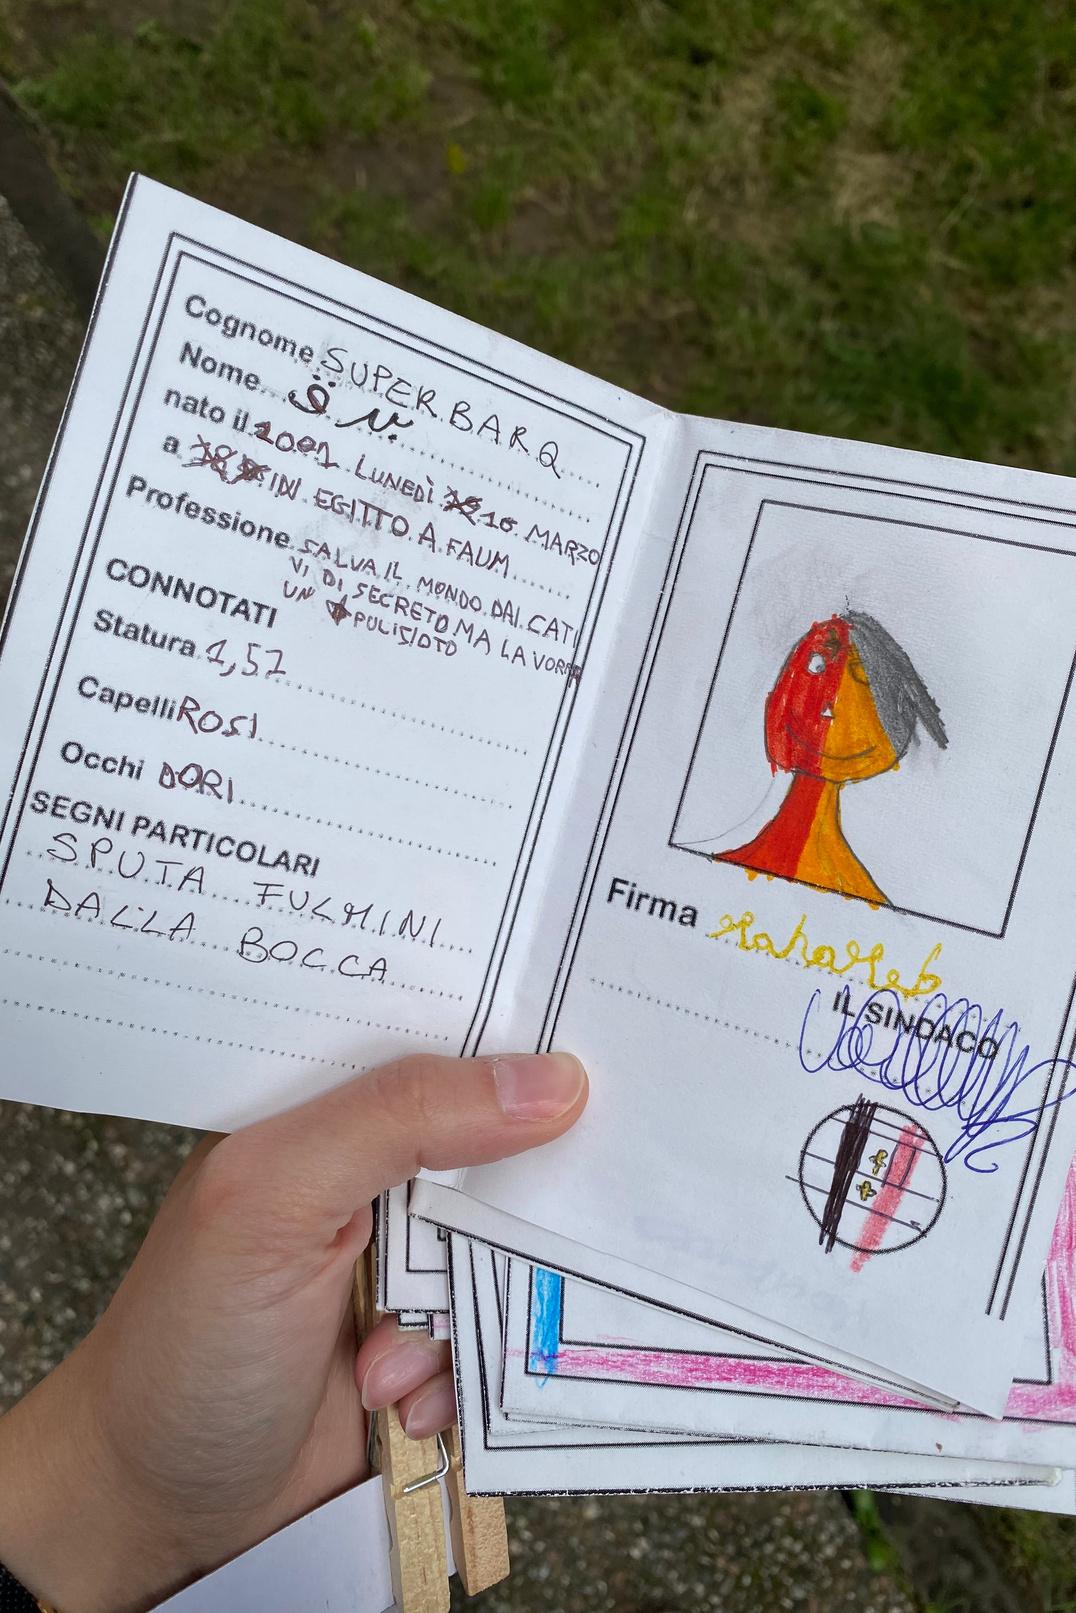 Cognome SUPER BARQ
Nome
nato il 1001 LUNEDÌ 16 MARZO
a IN EGITTO A FAUM
Professione SALVA IL MONDO DAI CATI
VI DI SECRETO MA LA VORA
UN PULISIOTO
CONNOTATI
Statura 1,57
Capelli ROSI
Occhi DORI
SEGNI PARTICOLARI
SPUTA FULMINI
DALLA BOCCA
Firma
IL SINDACO